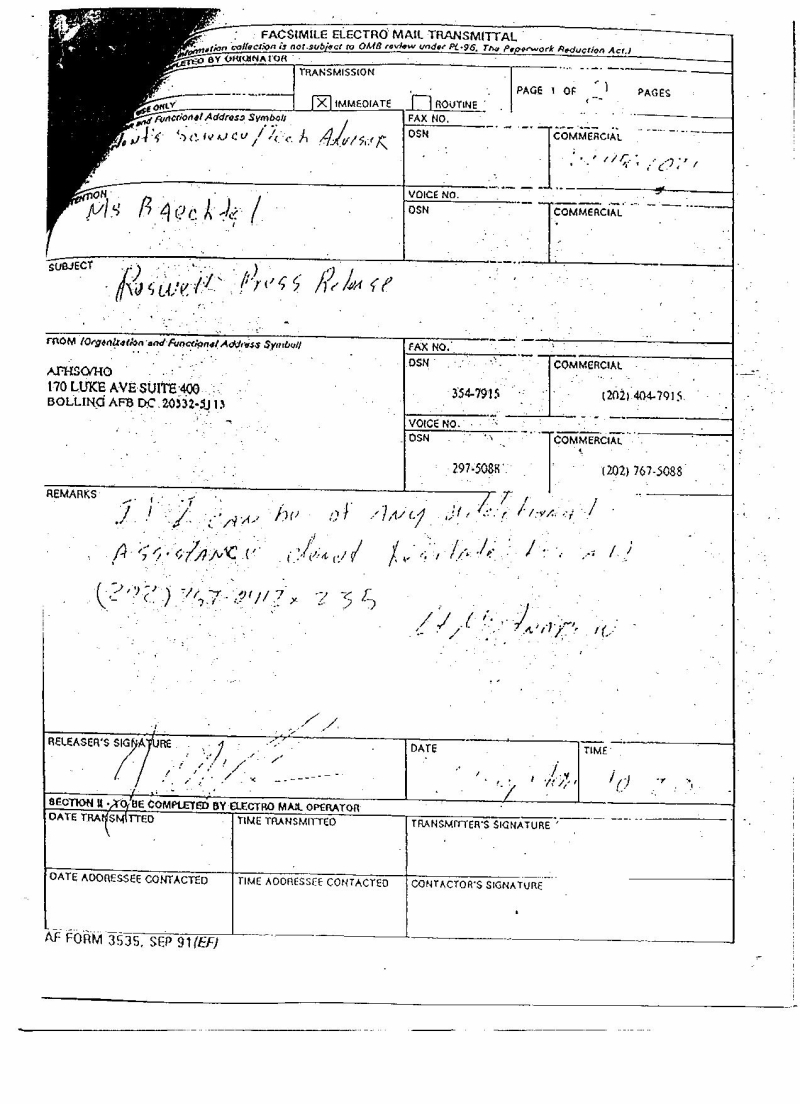 FACSIMILE ELECTRO MAIL TRANSMITTAL
information collection is not subject to OMB review under PL-96, The Paperwork Reduction Act.)
BY ORIGINATOR
TRANSMISSION
X IMMEDIATE
ROUTINE
PAGE 1 OF
PAGES
USE ONLY
and Functional Address Symbol)
Science/Tech Advisor
FAX NO.
DSN
COMMERCIAL
Ms Baechtel
VOICE NO.
DSN
COMMERCIAL
SUBJECT
Roswell Press Release
FROM (Organization and Functional Address Symbol)
AFHSO/HO
170 LUKE AVE SUITE 400
BOLLING AFB DC 20332-5113
FAX NO.
DSN
354-7915
COMMERCIAL
(202) 404-7915
VOICE NO.
DSN
297-5088
COMMERCIAL
(202) 767-5088
REMARKS
If I can be of any additional
Assistance
(202) 235
RELEASER'S SIGNATURE
DATE
TIME
SECTION II - TO BE COMPLETED BY ELECTRO MAIL OPERATOR
DATE TRANSMITTED
TIME TRANSMITTED
TRANSMITTER'S SIGNATURE
DATE ADDRESSEE CONTACTED
TIME ADDRESSEE CONTACTED
CONTACTOR'S SIGNATURE
AF FORM 3535, SEP 91 (EF)